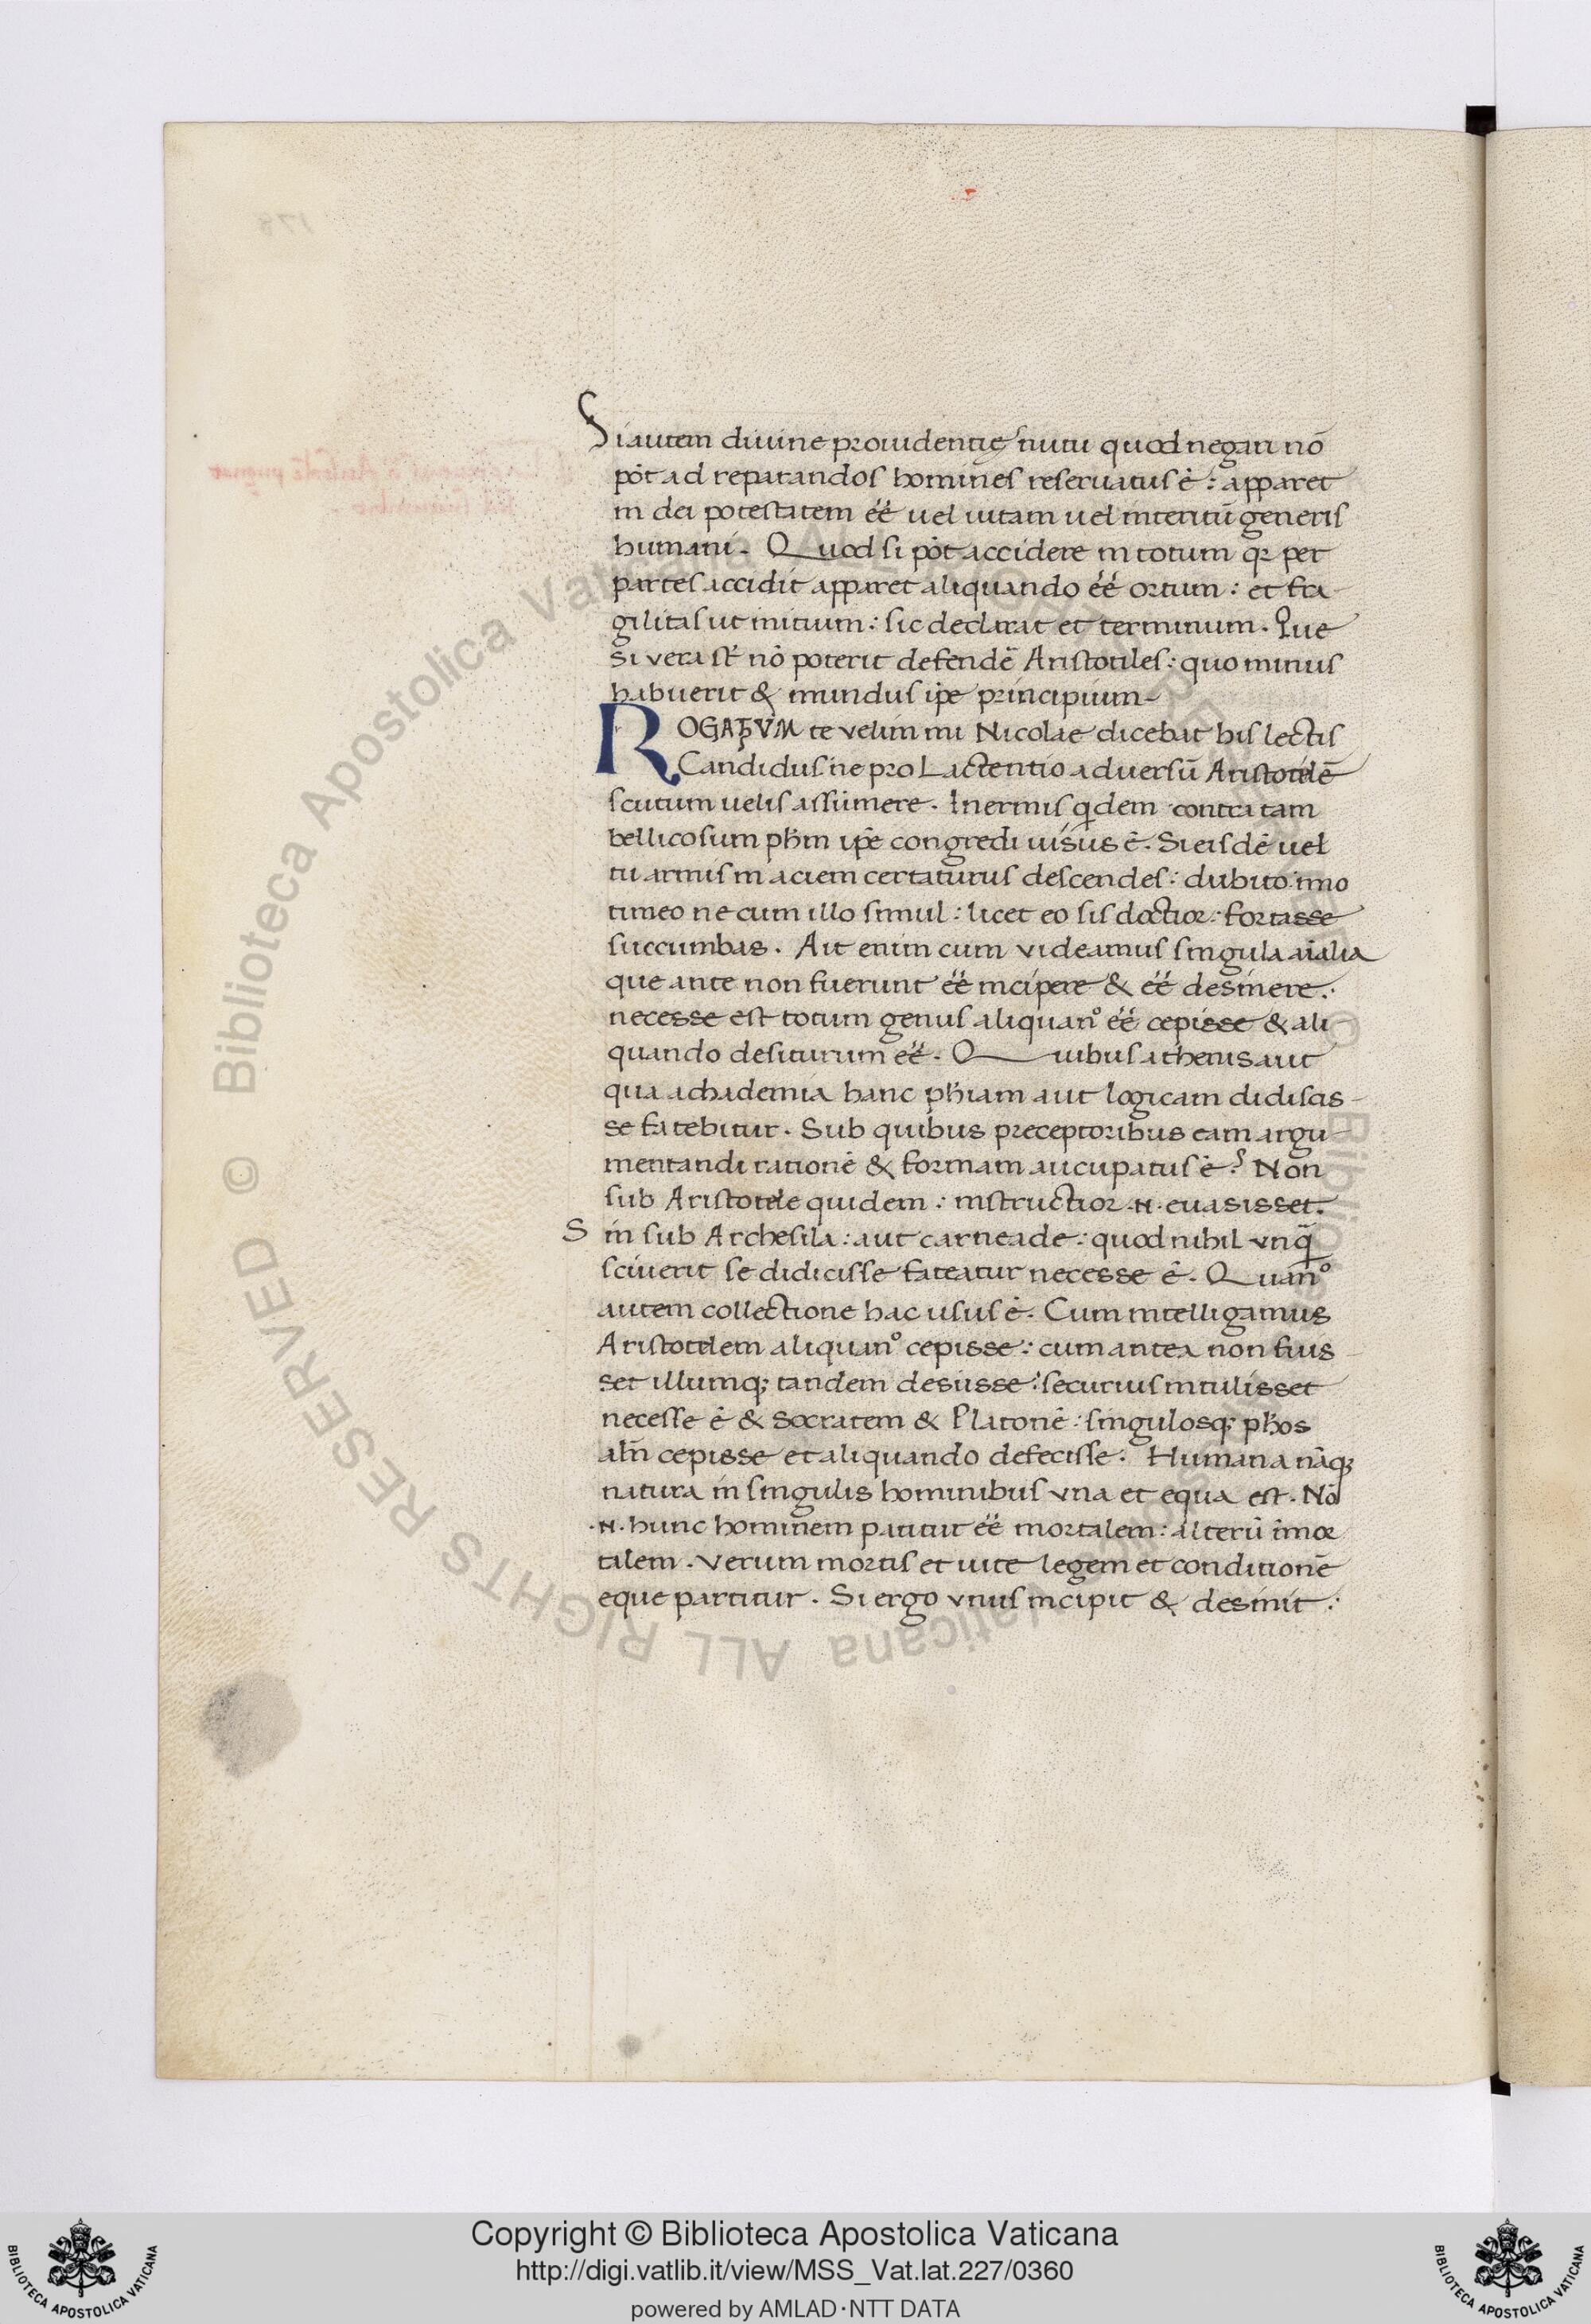 Si autem diuine prouidentię nutu quod negari nō
pōt ad reparandos homines reseruatus ē: apparet
in dei potestatem éé uel uitam uel interitū generis
humani. Quod si pōt accidere in totum qꝛ per
partes accidit apparet aliquando éé ortum: et fra
gilitas ut initium: sic declarat et terminum. Que
si vera st̄ nō poterit defendē Aristotiles: quo minus
habuerit & mundus ip̄e principium-
ROGATVM te velim mi Nicolae dicebat his lectis
Candidus: ne pro Lactentio aduersū Aristotelē
scutum uelis assumere. Inermis qdem contra tam
bellicosum ph̄m ip̄e congredi uisus ē. Si eisdē uel
tu armis in aciem certaturus descendes: dubito: imo
timeo ne cum illo simul: licet eo sis doctior: fortasse
succumbas. Ait enim cum videamus singula aīalia
que ante non fuerunt éé incipere & éé desinere:
necesse est totum genus aliquanº éé cepisse & ali-
quando desiturum éé. Quibus athenis aut
qua achademia hanc ph̄iam aut logicam didiscis-
se fatebitur. Sub quibus preceptoribus eam argu-
mentandi rationē & formam aucupatus ē? Non
sub Aristotele quidem: instructior .n. euasisset.
Sin sub Archesila: aut carneade: quod nihil vnq̄
sciuerit se didicisse fateatur necesse ē. Quanº
autem collectione hac usus ē. Cum intelligamus
Aristotelem aliquanº cepisse: cum antea non fuis-
set illumq; tandem desiisse: securius intulisset
necesse ē & Socratem & Platonē: singulosq; ph̄os
aln̄ cepisse et aliquando defecisse. Humana nāq;
natura in singulis hominibus vna et equa est. Nō
.n. hunc hominem patitur éé mortalem: alterū īmor
talem. Verum mortis et uite legem et conditionē
eque partitur. Si ergo vnus incipit & desinit:
© Biblioteca Apostolica Vaticana ALL RIGHTS RESERVED
Copyright © Biblioteca Apostolica Vaticana
http://digi.vatlib.it/view/MSS_Vat.lat.227/0360
powered by AMLAD·NTT DATA
BIBLIOTECA APOSTOLICA VATICANA
BIBLIOTECA APOSTOLICA VATICANA